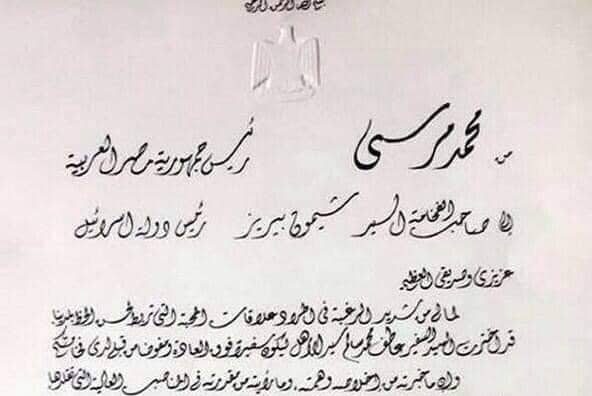 بسم الله الرحمن الرحيم
من محمد مرسى رئيس جمهورية مصر العربية
إلى صاحب الفخامة السيد شيمون بيريز رئيس دولة اسرائيل
عزيزى وصديقى العظيم
لما لى من شديد الرغبة فى اطراد علاقات المحبة التى تربط لحسن الحظ بلدينا
قد اخترت السيد السفير عاطف محمد سالم سيد الأهل ليكون سفيرا فوق العادة ومفوضا من قبلى لدى فخامتكم
وإن ما خبرته من إخلاصه وهمته وما رأيته من مقدرته فى المناصب العالية التى تقلدها